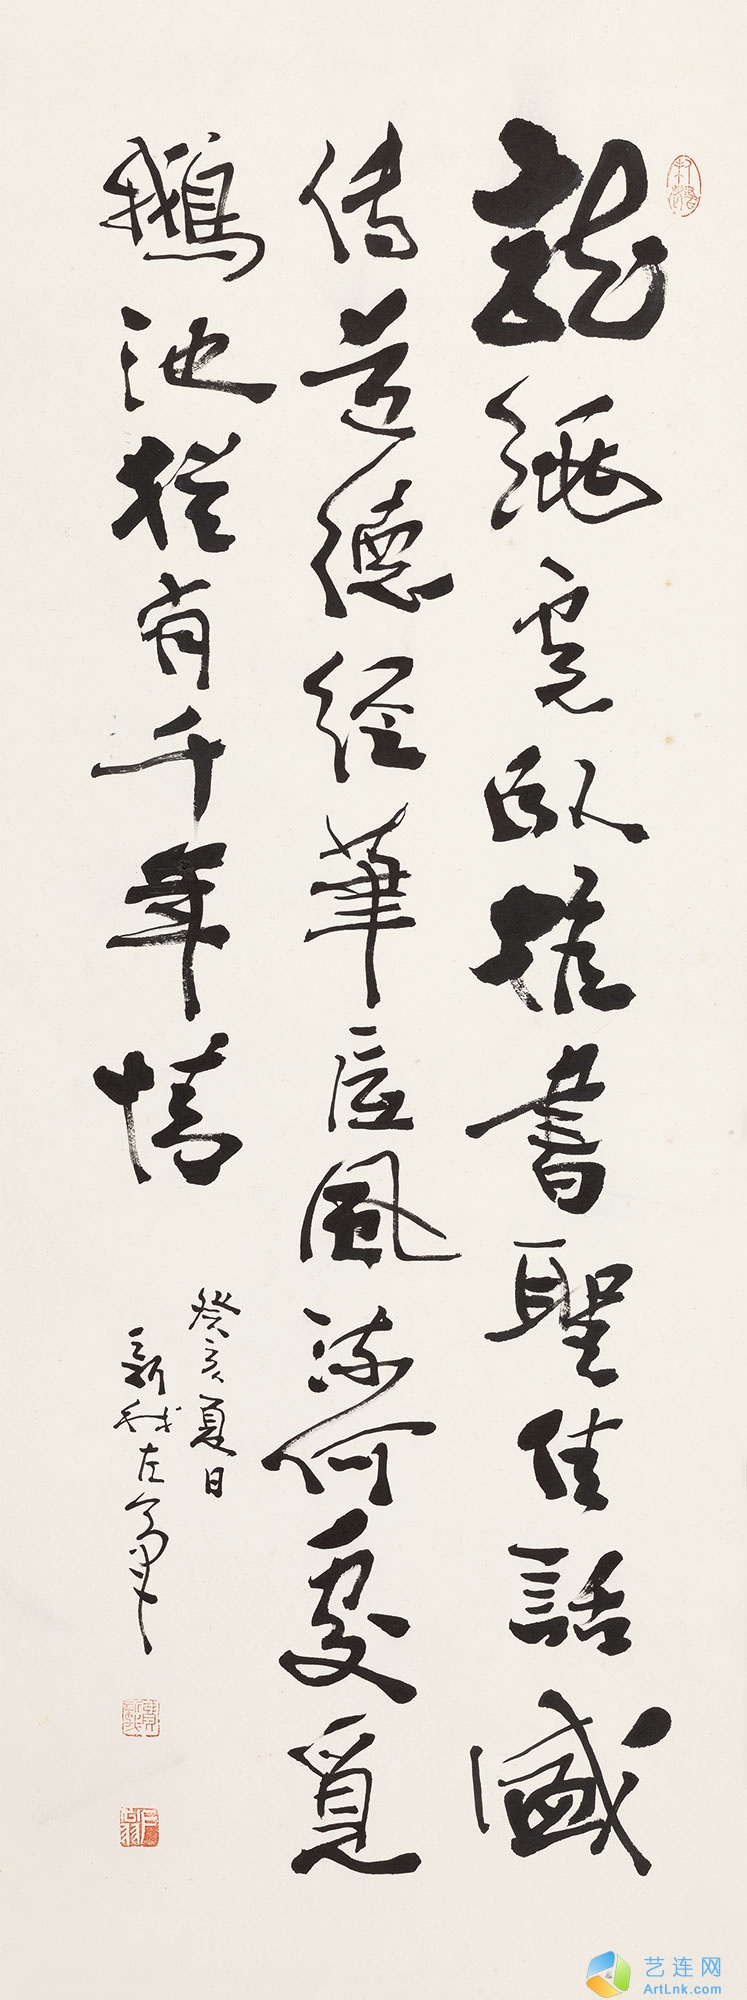 龍跳虎臥推書聖佳話盛
傳道德經華宦風流何處覓
鵝池猶有千年情
癸亥夏日
新穌左
艺连网
ArtLnk.com